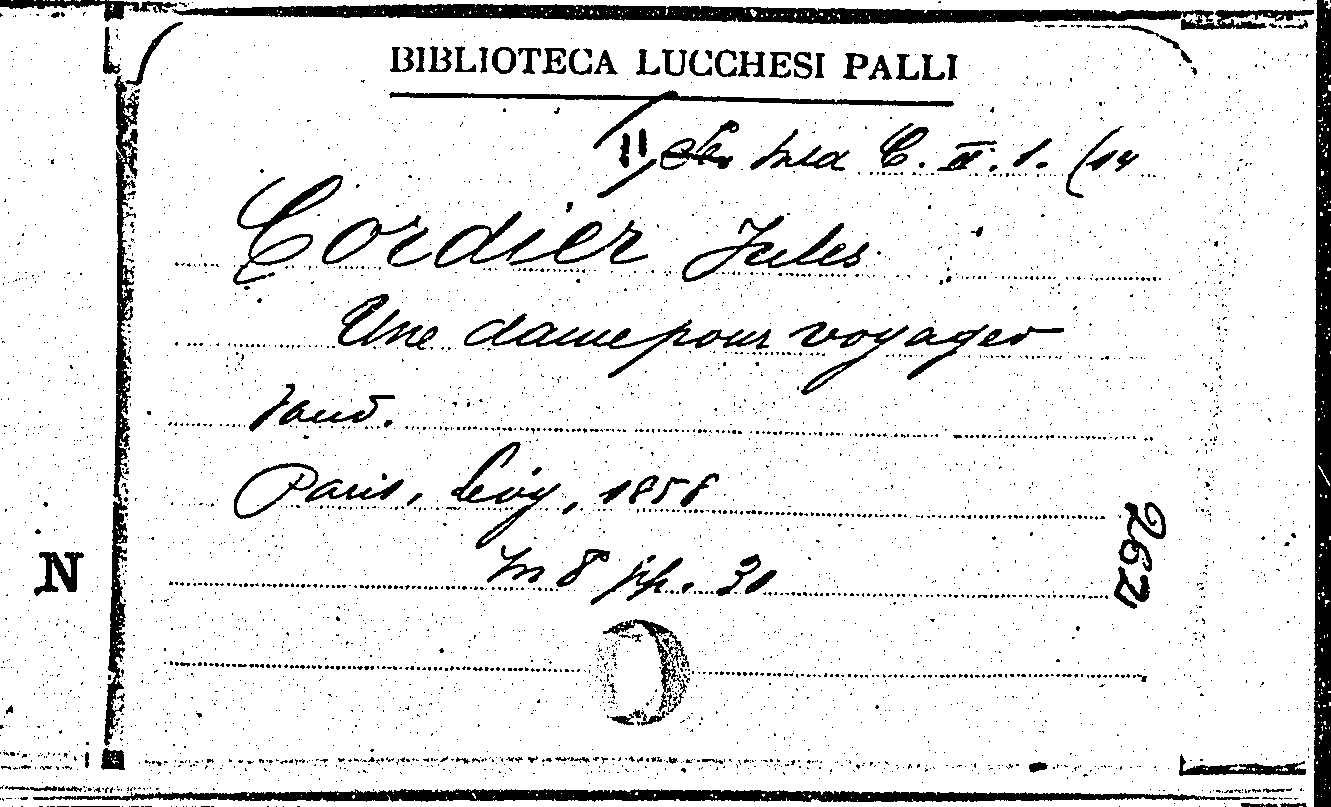 BIBLIOTECA LUCCHESI PALLI
C. II. 1. (14
Cordier Jules
Une dame pour voyager
Vaud.
Paris, Lévy, 1858
In 8 pp. 30
262
N